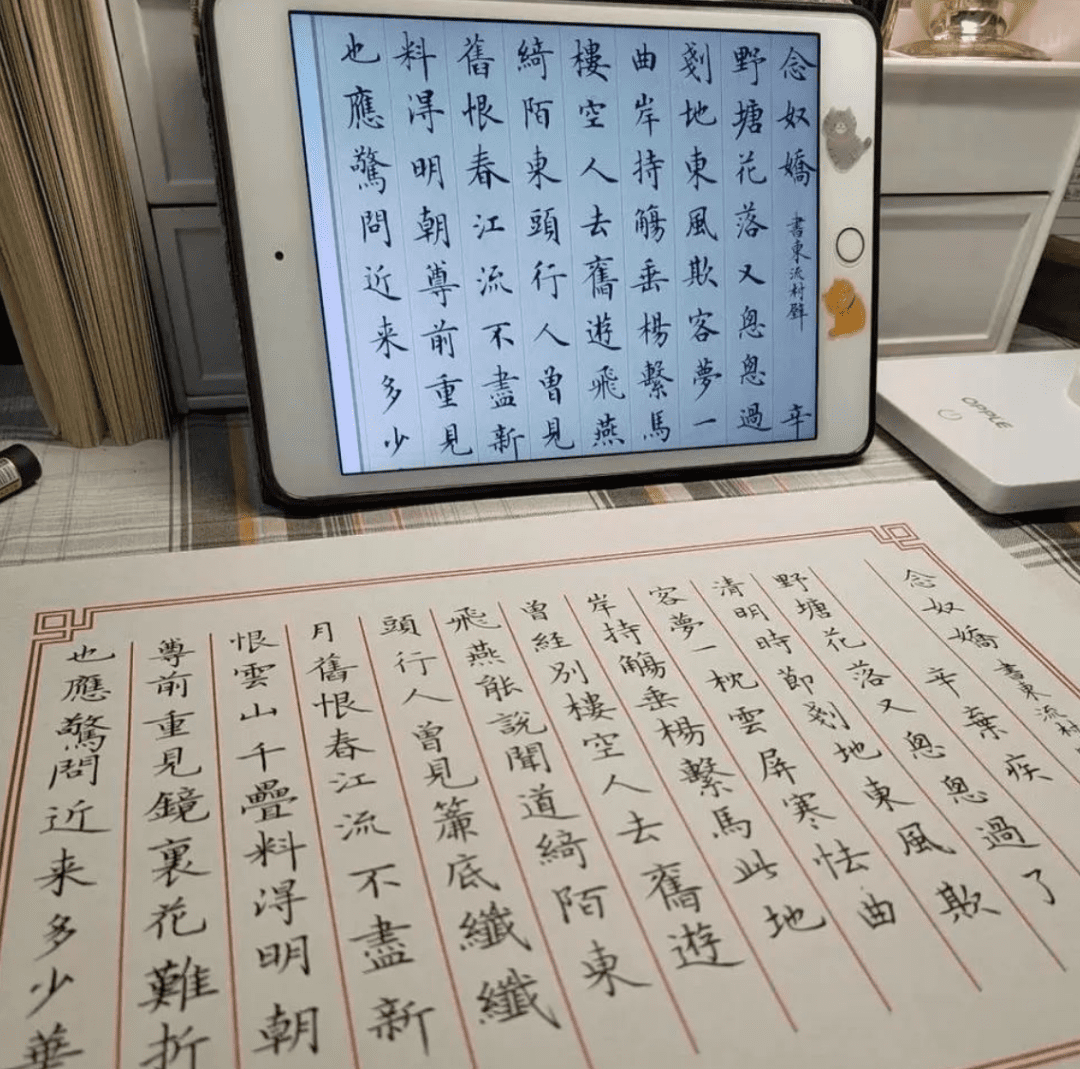 念奴嬌 書東流村壁 辛
野塘花落又悤悤過
剗地東風欺客夢一
曲岸持觴垂楊繫馬
樓空人去舊遊飛燕
綺陌東頭行人曾見
舊恨春江流不盡新
料得明朝尊前重見
也應驚問近来多少
OPPLE
念奴嬌 書東流村
辛棄疾
野塘花落又悤悤過了
清明時節剗地東風欺
客夢一枕雲屏寒怯曲
岸持觴垂楊繫馬此地
曾経別樓空人去舊遊
飛燕能説聞道綺陌東
頭行人曾見簾底纖纖
月舊恨春江流不盡新
恨雲山千疊料得明朝
尊前重見鏡裏花難折
也應驚問近来多少華